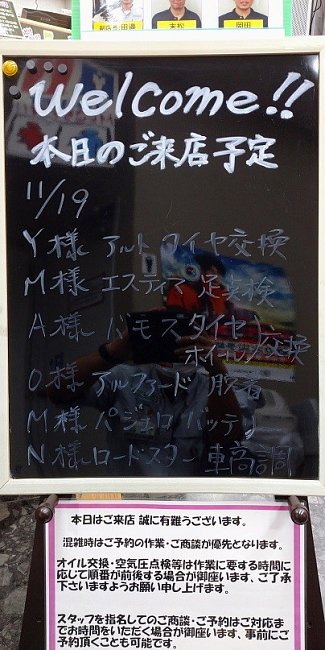 末松
岡田
Welcome!!
本日のご来店予定
11/19
Y様 アルト タイヤ交換
M様 エスティマ 足点検
A様 バモスタイヤ
ホイール交換
O様 アルファード 脱着
M様 パジェロ バッテリー
N様 ロードスター 車高調
本日はご来店 誠に有難うございます。
混雑時はご予約の作業・ご商談が優先となります。
オイル交換・空気圧点検等は作業に要する時間に
応じて順番が前後する場合が御座います、ご了承
下さいますようお願い申し上げます。
スタッフを指名してのご商談・ご予約はご対応ま
でお時間をいただく場合が御座います、事前にご
予約頂くことも可能です。